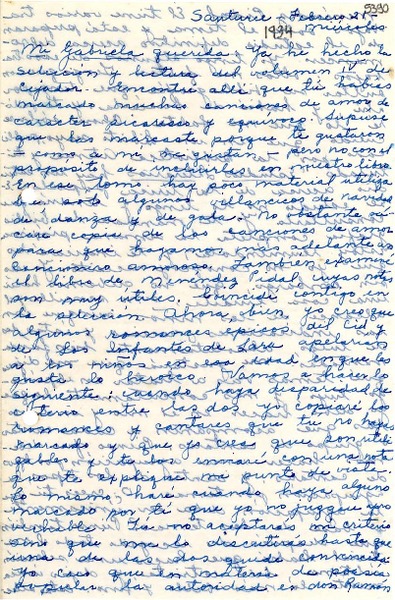 5390
Santurce, Febrero 21-
1934 miércoles
Mi Gabriela querida: Ya he hecho la
selección y lectura del volumen V de
Cejador. Encontré allí que tú habías
marcado muchas canciones de amor de
carácter picaresco y equívoco. Supuse
que las marcaste porque te gustaron
- como a mí me gustan - pero no con el
propósito de incluirlas en nuestro libro.
En ese tomo hay poco material utiliza
ble: solo algunos villancicos de navidad,
de danza y de gala. No obstante sa
caré copia de las canciones de amor
para que hagamos más adelante un
cancionero amoroso. También examiné
el libro de Menéndez Pidal cuyas notas
son muy útiles. Coincido contigo en
la selección. Ahora bien, yo creo que
algunos romances épicos del Cid y
de Los Infantes de Lara apelarían
a los niños en esa edad en que les
gusta lo heroico. Vamos a hacer lo
siguiente: cuando haya disparidad de
criterio entre las dos yo copiaré los
romances y cantares que tú no hayas
marcado y que yo crea que son utili
zables y te los enviaré con una nota
que te explique mi punto de vista.
Lo mismo haré cuando haya alguno
marcado por ti que yo no juzgue con
veniente. Tú no aceptarás mi criterio
sino que me lo discutirás hasta que
una de las dos quede convencida.
Yo creo que en materia de poesía
popular la autoridad es don Ramón